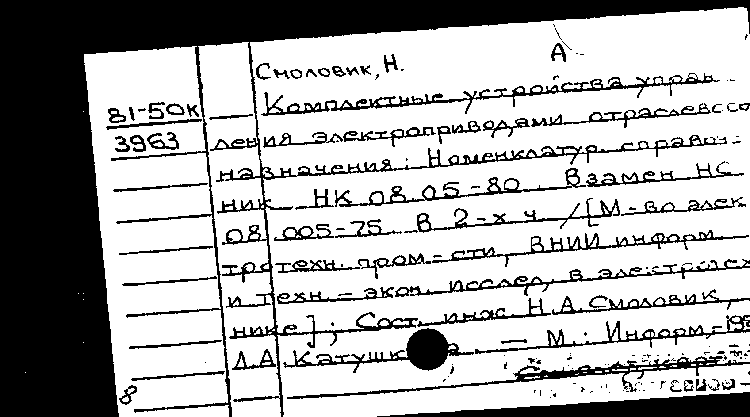 Смоловик, Н. А
81-50к Комплектные устройства управ
3963 ления электроприводами отраслевого
назначения: Номенклатур. справоч-
ник НК 08.05-80. Взамен НС
08.005-75. В 2-х ч. /[М-во элек
тротехн. пром-сти, ВНИИ информ.
и техн.-экон. исслед. в электротех
нике]; Сост. инж. Н.А.Смоловик,
Л.А. — М.: Информ,
8